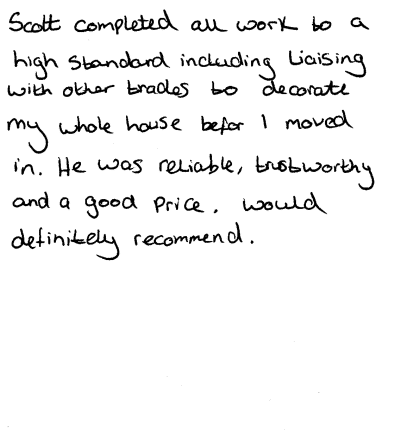 Scott completed all work to a
high standard including Liaising
with other trades to decorate
my whole house befor I moved
in. He was reliable, trustworthy
and a good Price. would
definitely recommend.